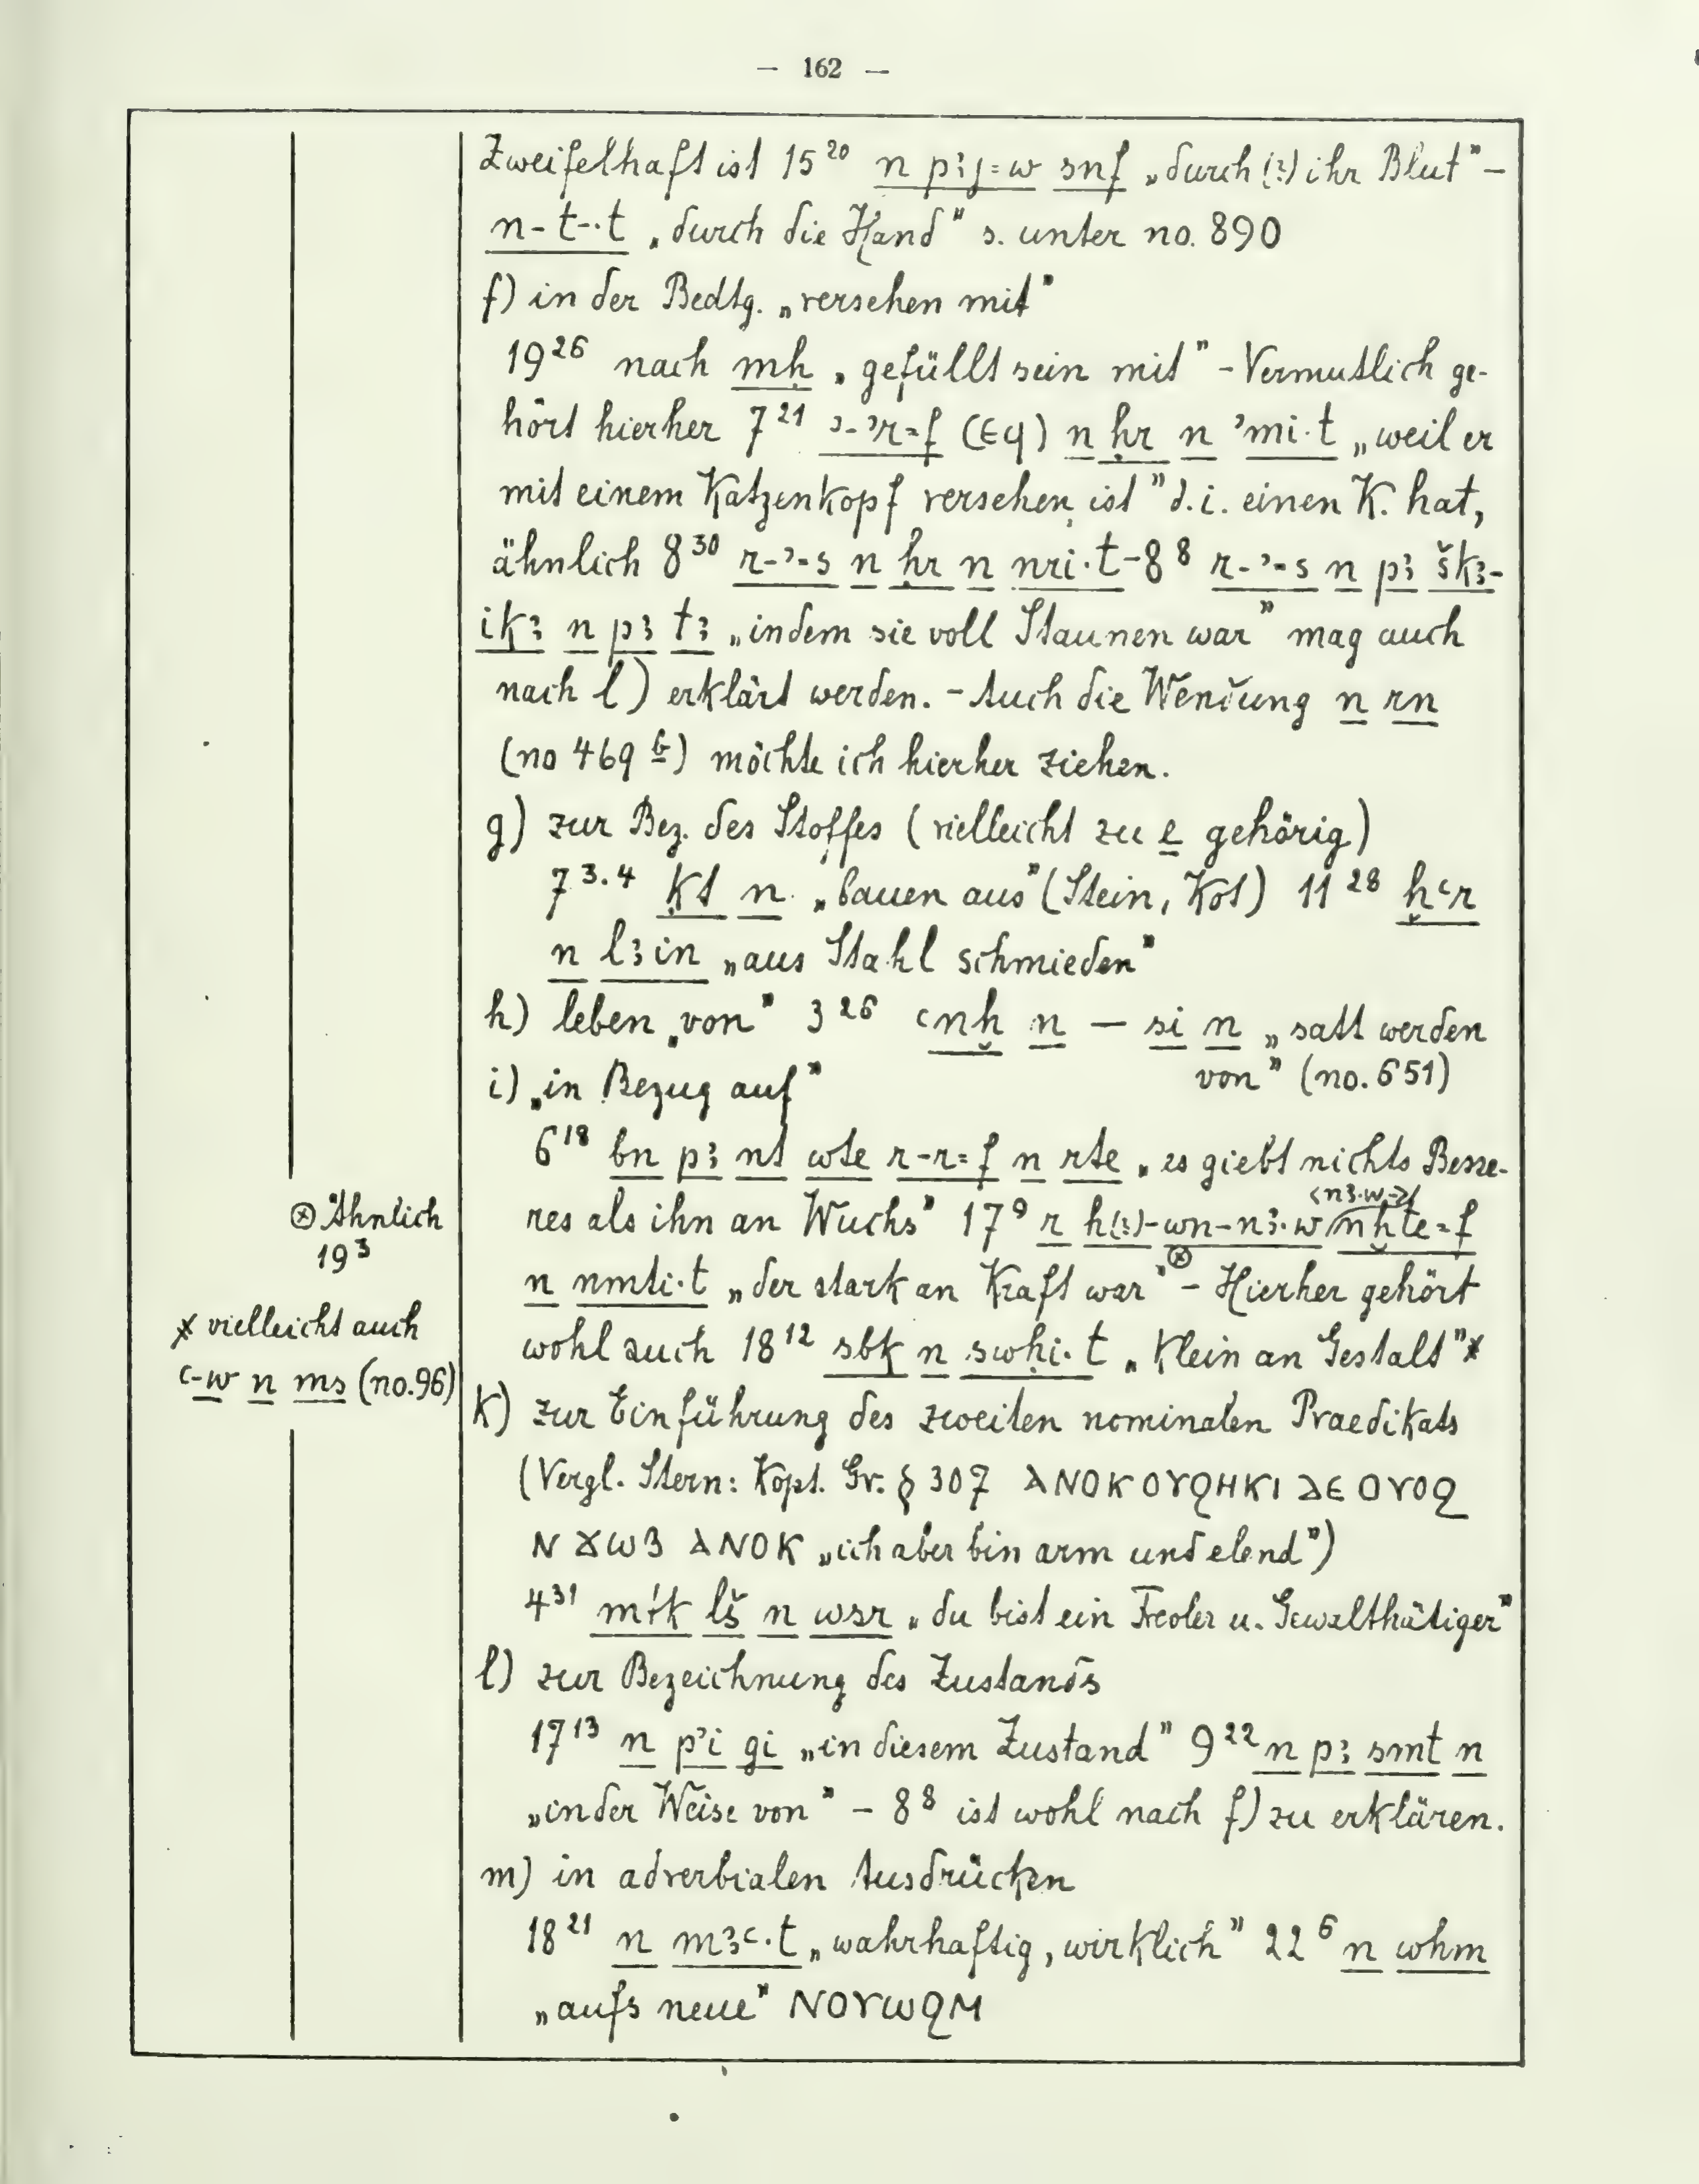 — 162 —
Zweifelhaft ist 15²⁰ n pꜣj=w snf „durch (?) ihr Blut” –
n-t-·t „durch die Hand” s. unter no. 890
f) in der Bedtg. „versehen mit”
19²⁶ nach mḥ „gefüllt sein mit” – Vermutlich ge-
hört hierher 7²¹ ʾ-ʾr=f (ⲉϥ) n ḥr n ʾmi·t „weil er
mit einem Katzenkopf versehen ist” d.i. einen K. hat,
ähnlich 8³⁰ r-ʾ=s n ḥr n nri·t – 8⁸ r-ʾ=s n pꜣ škꜣ-
ikꜣ n pꜣ tꜣ „indem sie voll Staunen war” mag auch
nach l) erklärt werden. – Auch die Wendung n rn
(no 469 b) möchte ich hierher ziehen.
g) zur Bez. des Stoffes (vielleicht zu e gehörig)
7³·⁴ ḳt n „bauen aus” (Stein, Kot) 11²⁸ ḫꜥr
n lꜣin „aus Stahl schmieden”
h) leben „von” 3²⁶ ꜥnḫ n — si n „satt werden
von” (no. 651)
i) „in Bezug auf”
6¹⁸ bn pꜣ nt wte r-r=f n rte „es giebt nichts Besse-
res als ihn an Wuchs” 17⁹ r h(?)-wn-nꜣ·w nḫte=f
<nꜣ·w->
n nmti·t „der stark an Kraft war”⊗ – Hierher gehört
⊗ Ähnlich
19³
wohl auch 18¹² sbk n swḥi·t „klein an Gestalt”*
* vielleicht auch
ꜥ-w n ms (no. 96)
k) zur Einführung des zweiten nominalen Praedikats
(Vergl. Stern: Kopt. Gr. § 307 ⲁⲛⲟⲕ ⲟⲩϩⲏⲕⲓ ⲇⲉ ⲟⲩⲟϩ
ⲛ ϫⲱⲃ ⲁⲛⲟⲕ „ich aber bin arm und elend”)
4³¹ mtk lš n wsr „du bist ein Frevler u. Gewaltthätiger”
l) zur Bezeichnung des Zustands
17¹³ n pʾi gi „in diesem Zustand” 9²² n pꜣ smt n
„in der Weise von” – 8⁸ ist wohl nach f) zu erklären.
m) in adverbialen Ausdrücken
18²¹ n mꜣꜥ·t „wahrhaftig, wirklich” 22⁶ n whm
„aufs neue” ⲛⲟⲩⲱϩⲙ